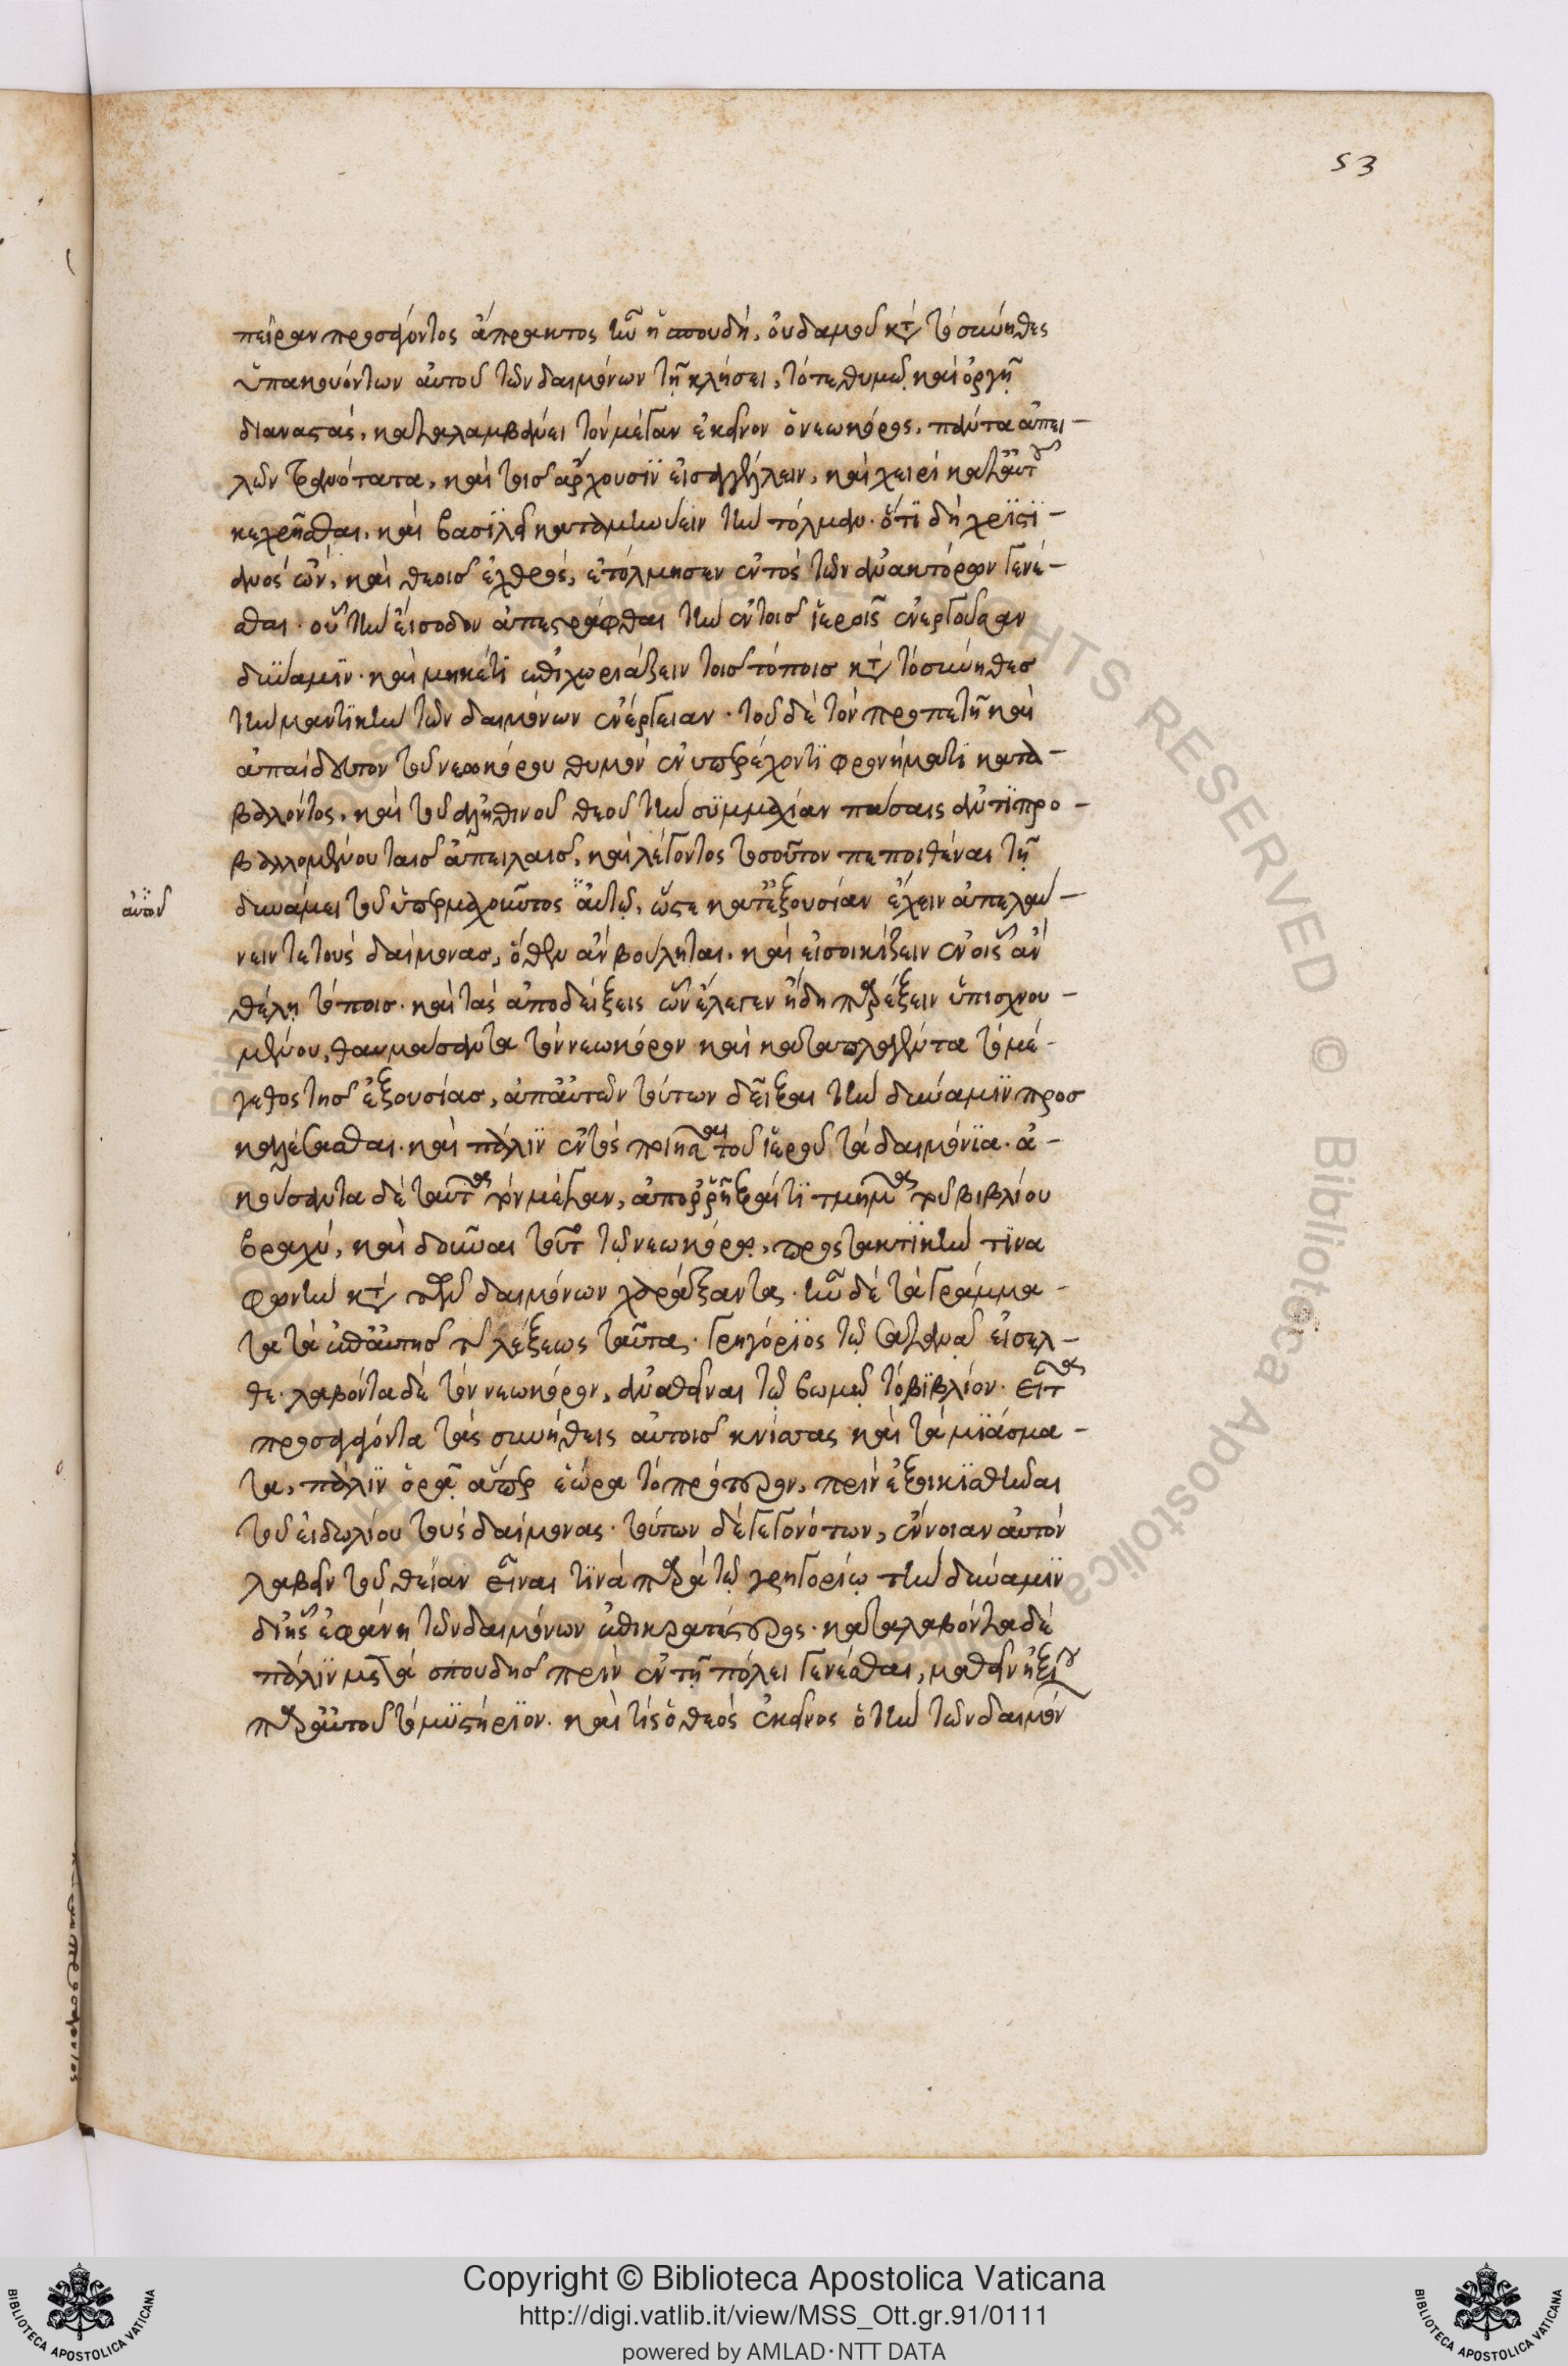 53
πεῖραν προσάγοντος ἄπρακτος ἦν ἡ σπουδή, οὐδαμοῦ κατὰ τὸ σύνηθες
ὑπακουόντων αὐτοῦ τῶν δαιμόνων τῇ κλήσει, τότε θυμῷ καὶ ὀργῇ
διαναστάς, καταλαμβάνει τὸν μέγαν ἐκεῖνον ὁ νεωκόρος, πάντα ἀπει-
λῶν τὰ δεινότατα, καὶ τοῖς ἄρχουσϊν εἰσαγγέλλειν, καὶ χειρὶ κατ' αὐτοῦ
κεχρῆσθαι, καὶ βασϊλεῖ καταμηνύειν τὴν τόλμαν. ὅτϊ δὴ χρϊστϊ-
ανὸς ὤν, καὶ θεοῖς ἐχθρός, ἐτόλμησεν ἐντὸς τῶν ἀνακτόρων γενέ-
σθαι. οὗ τὴν εἴσοδον ἀπεστράφθαι τὴν ἐν τοῖς ἱεροῖς ἐνεργοῦσαν
δύναμϊν. καὶ μηκέτϊ ἐπιχωριάζειν τοῖς τόποις κατὰ τὸ σύνηθες
τὴν μαντϊκὴν τῶν δαιμόνων ἐνέργειαν. τοῦ δὲ τὸν προπετῆ καὶ
ἀπαίδευτον τοῦ νεωκόρου θυμὸν ἐν ὑπερέχοντϊ φρονήματϊ κατα-
βαλόντος, καὶ τοῦ ἀληθινοῦ θεοῦ τὴν συμμαχίαν πάσαις ἀντϊπρο-
βαλλομένου ταῖς ἀπειλαῖς, καὶ λέγοντος τοσοῦτον πεποιθέναι τῇ
δυνάμει τοῦ ὑπερμαχοῦντος αὐτῷ, ὥστε κατεξουσίαν ἔχειν ἀπελαύ-
αὐτοῦ
νειν τε τοὺς δαίμονας, ὅθεν ἂν βούληται, καὶ εἰσοικίζειν ἐν οἷς ἂν
θέλῃ τόποις. καὶ τὰς ἀποδείξεις ὧν ἔλεγεν ἤδη παρέξειν ὑπισχνου-
μένου, θαυμάσαντα τὸν νεωκόρον καὶ καταπλαγέντα τὸ μέ-
γεθος τῆς ἐξουσίας, ἀπ' αὐτῶν τούτων δεῖξαι τὴν δύναμϊν προσ
καλέσασθαι. καὶ πάλϊν ἐντὸς ποιῆσαι τοῦ ἱεροῦ τὰ δαιμόνϊα. ἀ-
κούσαντα δὲ ταῦτα τὸν μέγαν, ἀπορρῆξαί τϊ τμῆμα τοῦ βιβλίου
βραχύ, καὶ δοῦναι τοῦτο τῷ νεωκόρῳ, προστακτϊκήν τϊνα
φωνὴν κατὰ τῶν δαιμόνων χαράξαντα. ἦν δὲ τὰ γράμμα-
τα τὰ ἐπ' αὐτῆς τῆς λέξεως ταῦτα, Γρηγόρϊος τῷ Σατανᾷ εἴσελ-
θε. λαβόντα δὲ τὸν νεωκόρον, ἀναθεῖναι τῷ βωμῷ τὸ βϊβλίον. εἶτα
προσαγαγόντα τὰς συνήθεις αὐτοῖς κνίσσας καὶ τὰ μϊάσμα-
τα, πάλϊν ὁρᾶν ἅπερ ἑώρα τὸ πρότερον, πρὶν ἐξοικϊσθῆναι
τοῦ εἰδωλίου τοὺς δαίμονας. τούτων δὲ γεγονότων, ἔννοιαν αὐτὸν
λαβεῖν τοῦ θείαν εἶναι τϊνὰ παρὰ τῷ γρηγορίῳ τὴν δύναμϊν
δι' ἧς ἐφάνη τῶν δαιμόνων ἐπικρατέστερος. καταλαβόντα δὲ
πάλϊν μετὰ σπουδῆς πρὶν ἐν τῇ πόλει γενέσθαι, μαθεῖν ἠξίου
παρ' αὐτοῦ τὸ μυστήρϊον. καὶ τίς ὁ θεὸς ἐκεῖνος ὁ τὴν τῶν δαιμόν
Copyright © Biblioteca Apostolica Vaticana
http://digi.vatlib.it/view/MSS_Ott.gr.91/0111
powered by AMLAD·NTT DATA